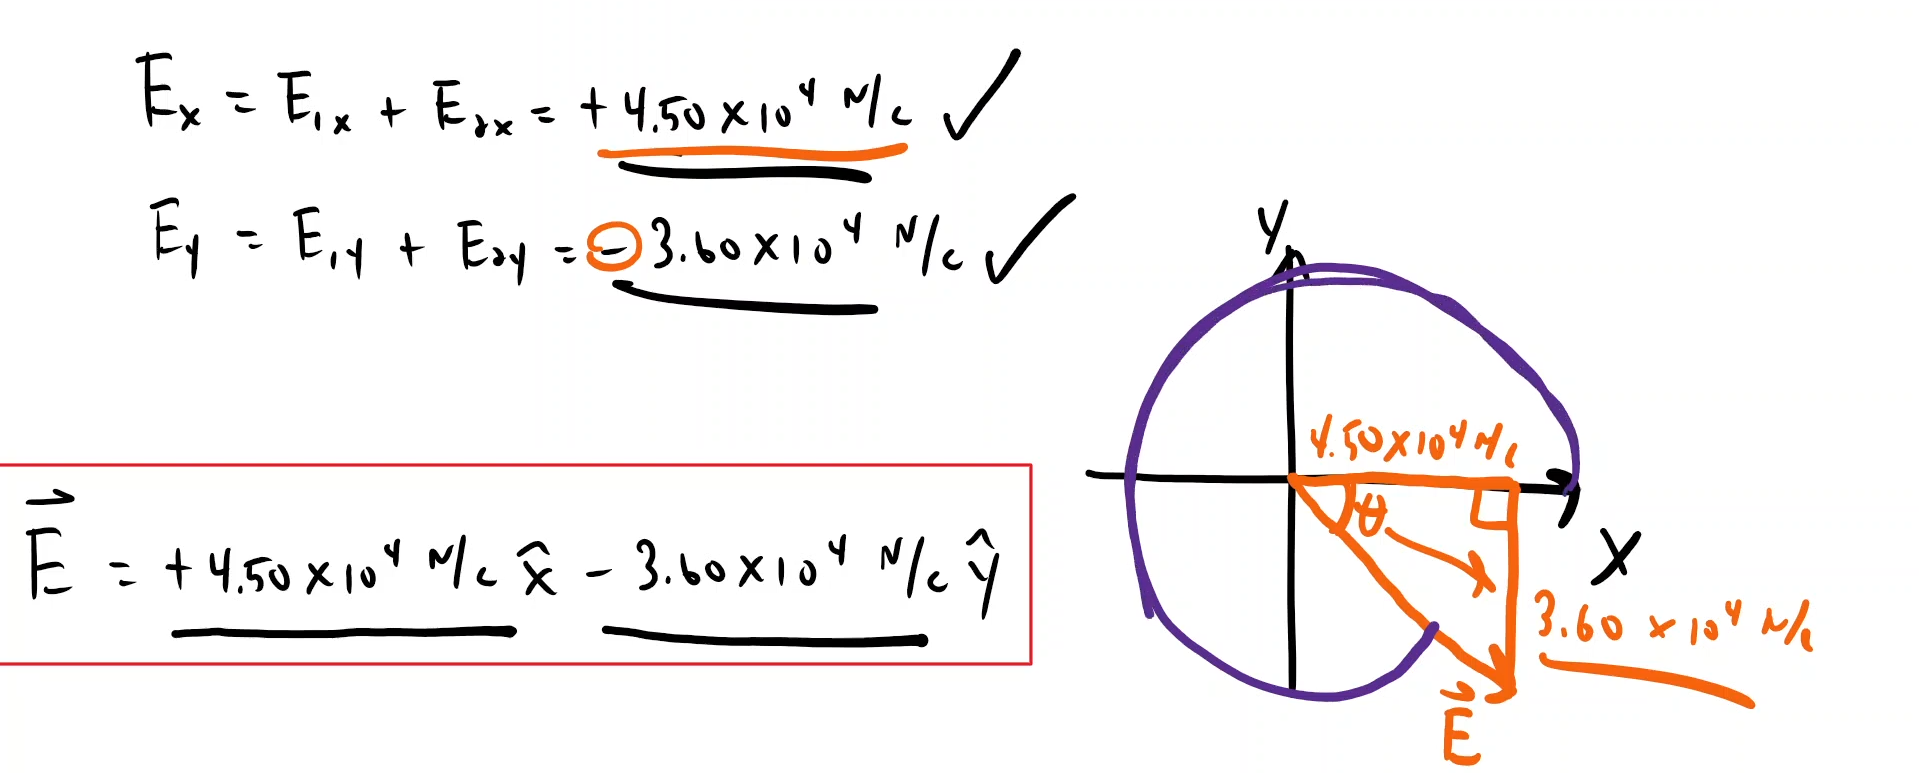 Eₓ = E₁ₓ + E₂ₓ = +4.50×10⁴ N/C ✓
E_y = E₁y + E₂y = -3.60×10⁴ N/C ✓
y
4.50×10⁴ N/C
θ
x
3.60×10⁴ N/C
E⃗ = +4.50×10⁴ N/C x̂ - 3.60×10⁴ N/C ŷ
E⃗